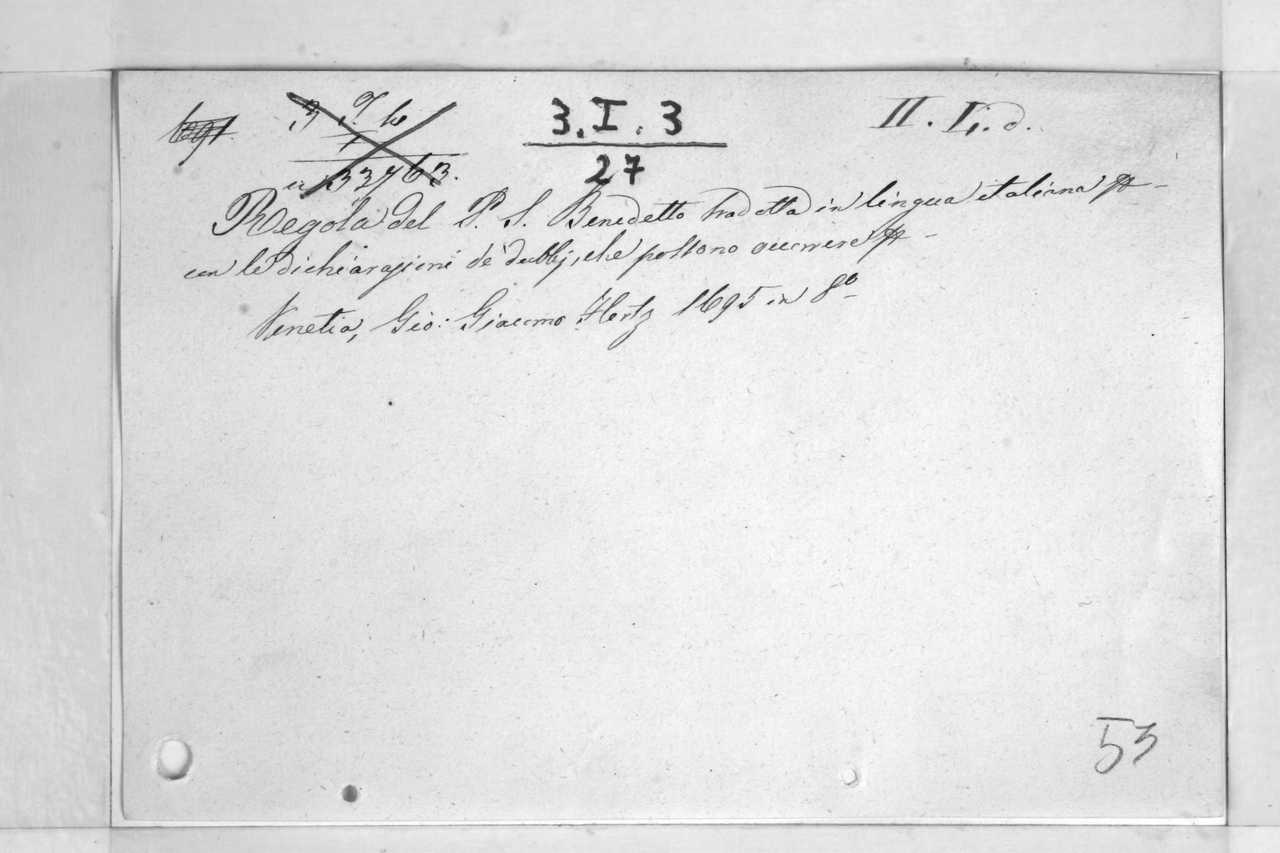 3.I.3
27
Regola del P. S. Benedetto tradotta in lingua italiana
con le dichiarazioni de' dubbj, che possono occorrere
Venetia, Gio: Giacomo Hertz 1695 in 8º
53